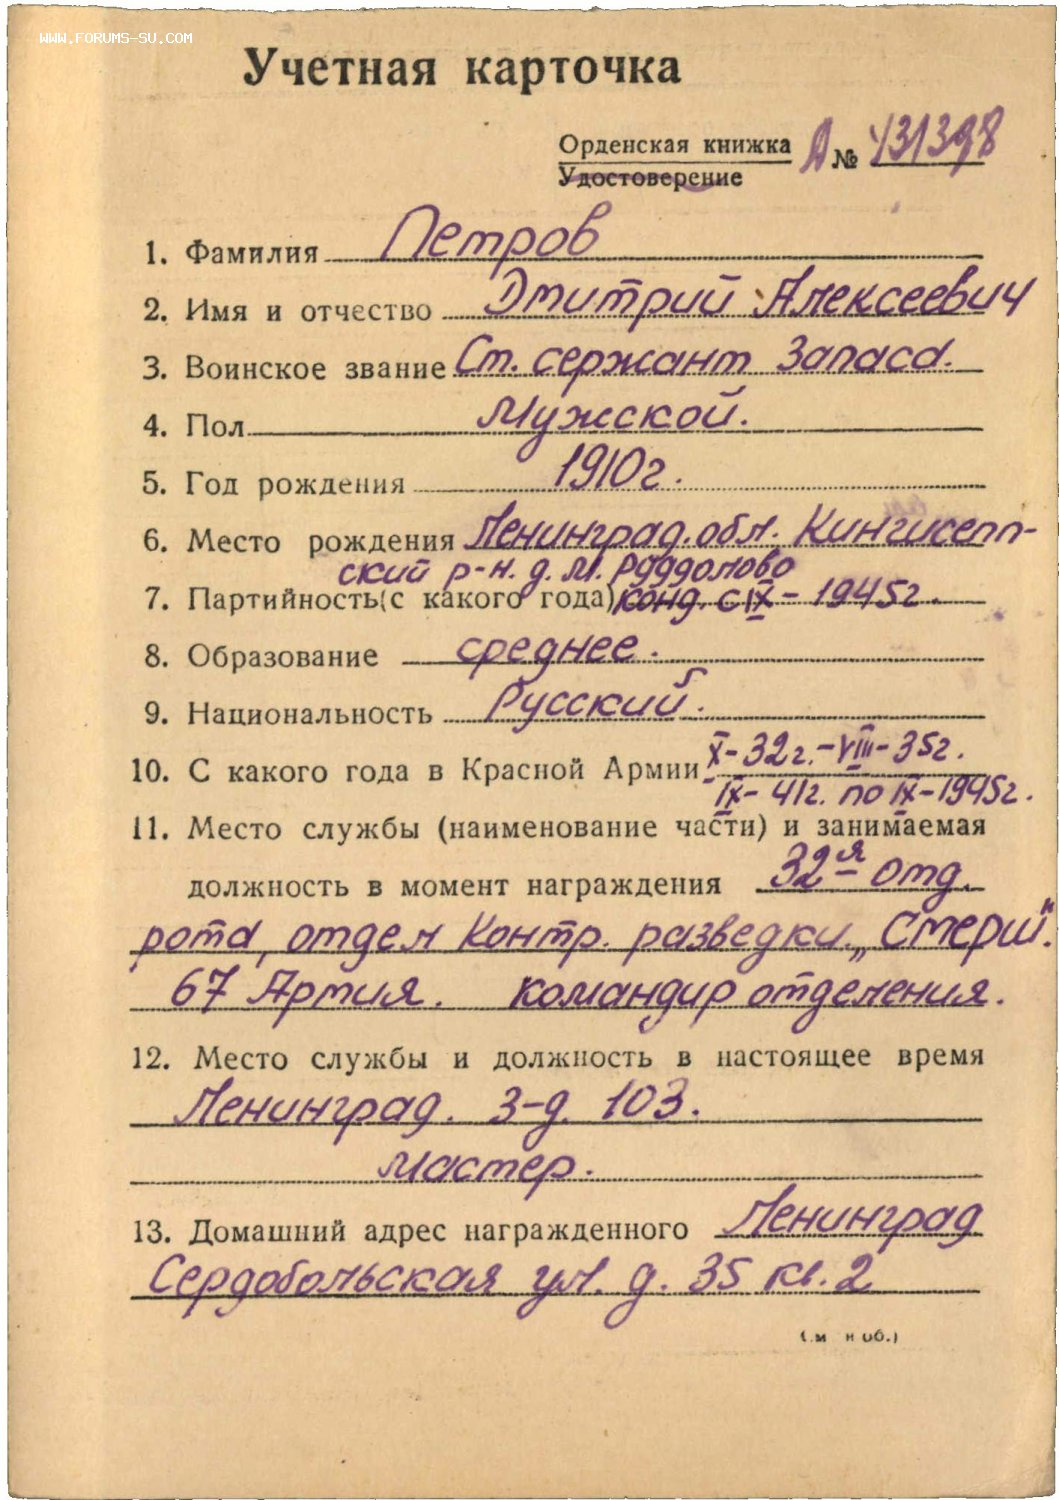 WWW.FORUMS-SU.COM
Учетная карточка
Орденская книжка А № 431398
Удостоверение
1. Фамилия Петров
2. Имя и отчество Дмитрий Алексеевич
3. Воинское звание Ст. сержант запаса.
4. Пол Мужской.
5. Год рождения 1910г.
6. Место рождения Ленинград. обл. Кингисепп-
ский р-н. д. М. Руддолово
7. Партийность (с какого года) конд. с IX – 1945г.
8. Образование среднее.
9. Национальность Русский.
10. С какого года в Красной Армии X-32г.-VIII-35г.
IX-41г. по IX-1945г.
11. Место службы (наименование части) и занимаемая
должность в момент награждения 32я отд.
рота, отдел контр. разведки „Смерш".
67 Армия. командир отделения.
12. Место службы и должность в настоящее время
Ленинград. З-д. 103.
мастер.
13. Домашний адрес награжденного Ленинград
Сердобольская ул. д. 35 кв. 2
(.м н об.)